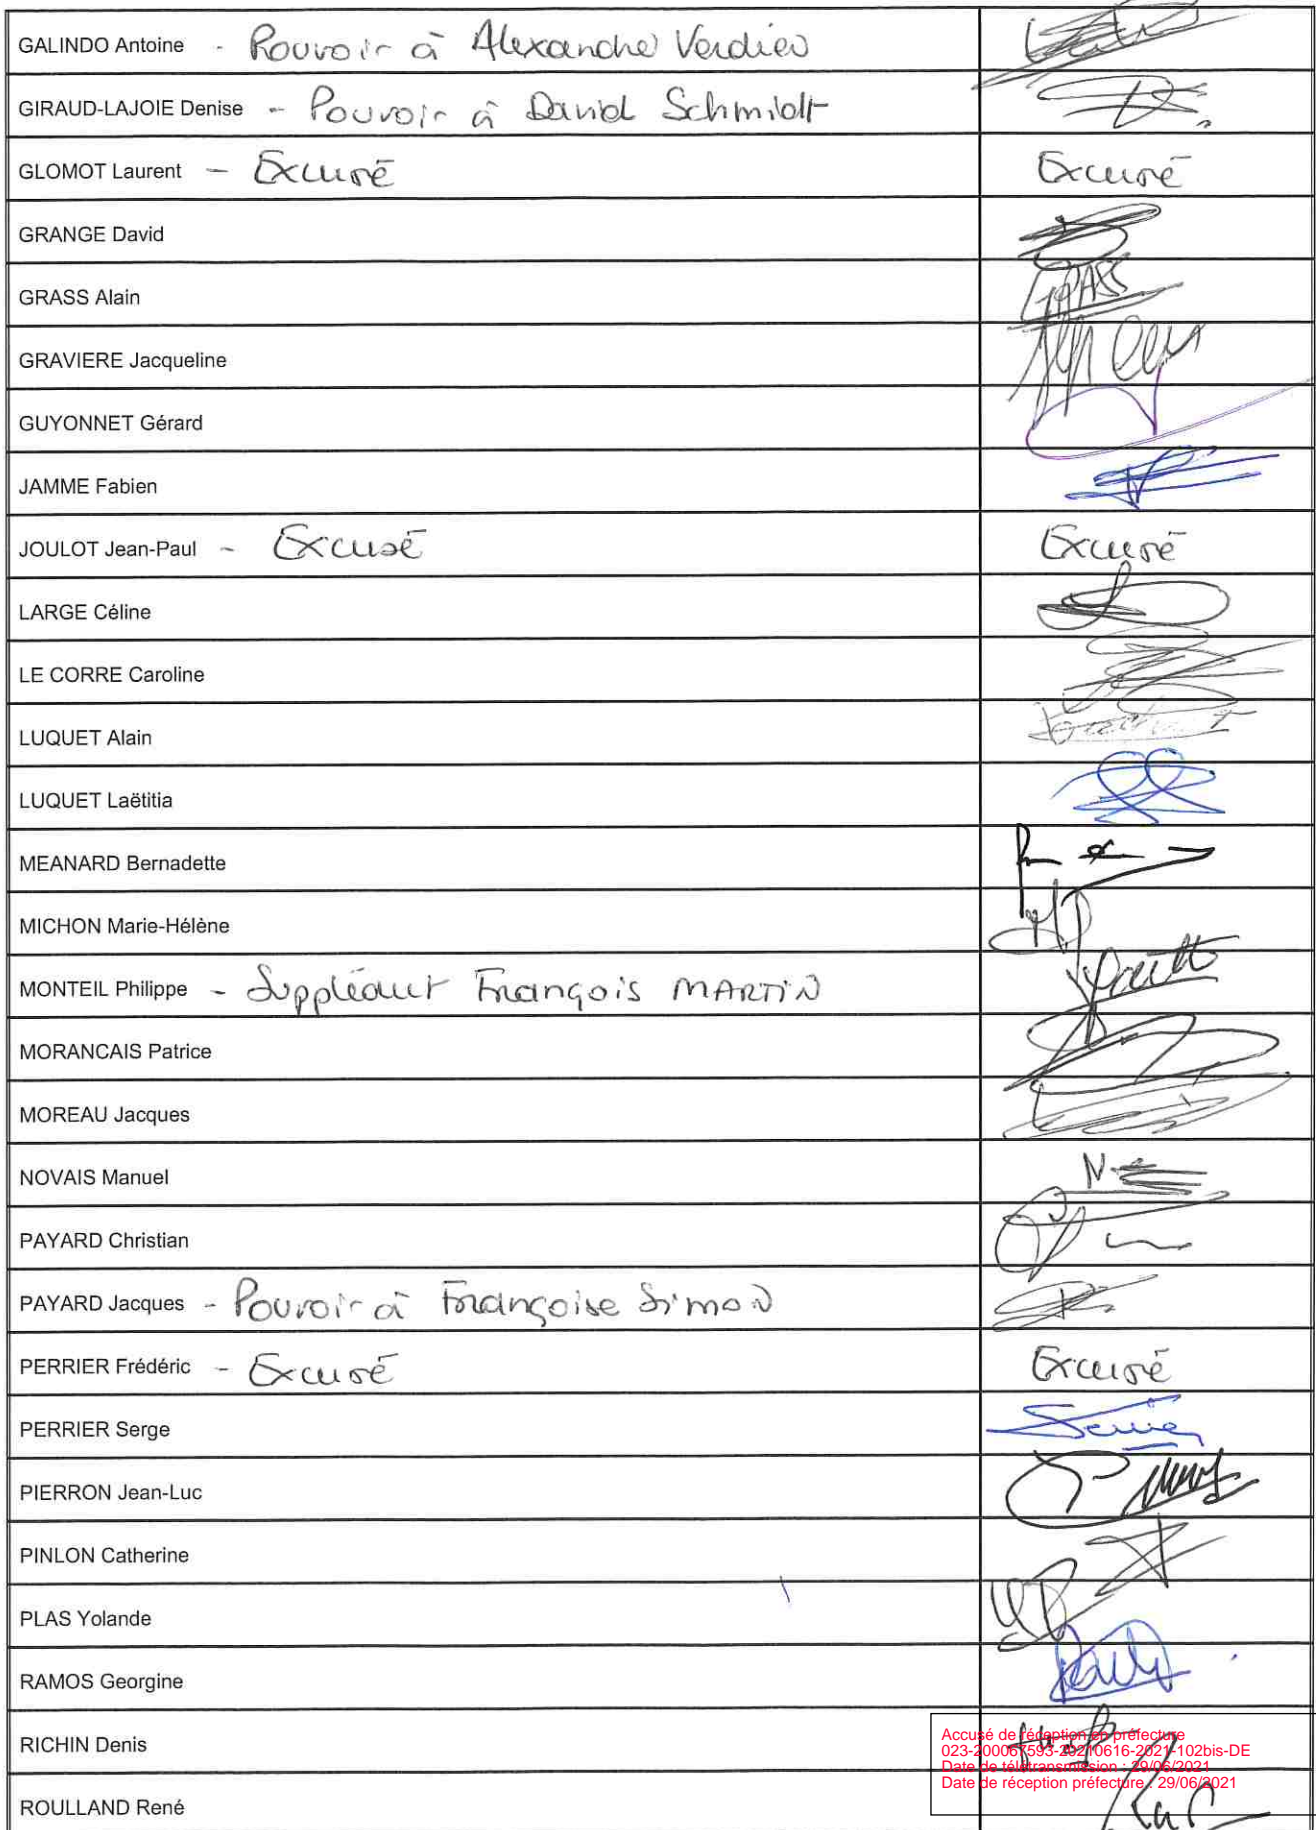 GALINDO Antoine - Pouvoir à Alexandre Verdier
GIRAUD-LAJOIE Denise - Pouvoir à David Schmidt
GLOMOT Laurent - Excusé Excusé
GRANGE David
GRASS Alain GRASS
GRAVIERE Jacqueline
GUYONNET Gérard
JAMME Fabien
JOULOT Jean-Paul - Excusé Excusé
LARGE Céline
LE CORRE Caroline
LUQUET Alain
LUQUET Laëtitia
MEANARD Bernadette
MICHON Marie-Hélène
MONTEIL Philippe - Suppléant François MARTIN
MORANCAIS Patrice
MOREAU Jacques
NOVAIS Manuel
PAYARD Christian
PAYARD Jacques - Pouvoir à Françoise Simon
PERRIER Frédéric - Excusé Excusé
PERRIER Serge
PIERRON Jean-Luc
PINLON Catherine
PLAS Yolande
RAMOS Georgine
RICHIN Denis
ROULLAND René
Accusé de réception en préfecture
023-200067593-20210616-2021-102bis-DE
Date de télétransmission : 29/06/2021
Date de réception préfecture : 29/06/2021